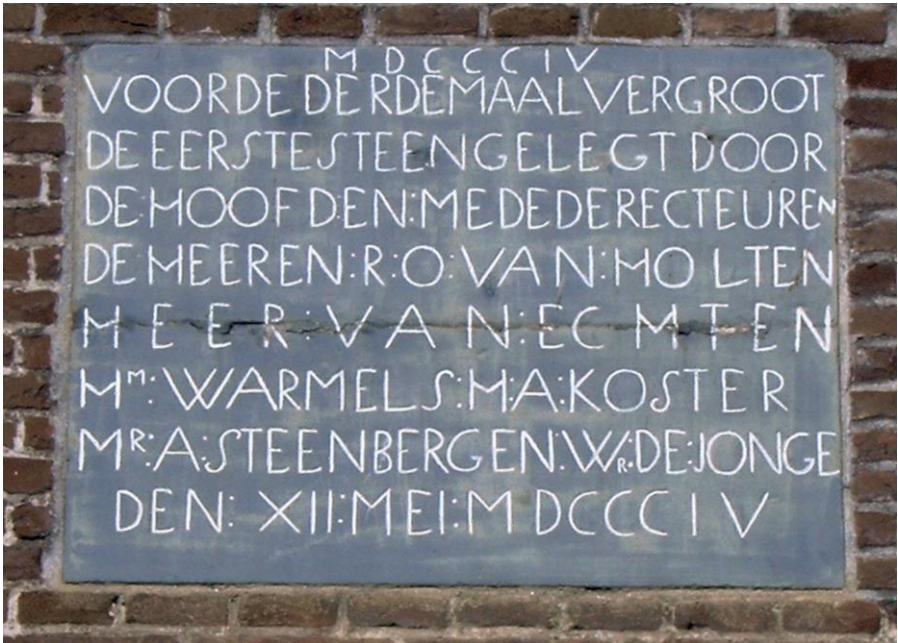 MDCCCIV
VOORDE DERDEMAAL VERGROOT
DE EERSTE STEEN GELEGT DOOR
DE HOOFDEN: MEDEDERECTEUREN
DE HEEREN: R: O: VAN: HOLTEN
HEER: VAN: ECHTEN
Hm: WARMELS: H: A: KOSTER
MR: A: STEENBERGEN: WR: DE: JONGE
DEN: XII: MEI: MDCCCIV